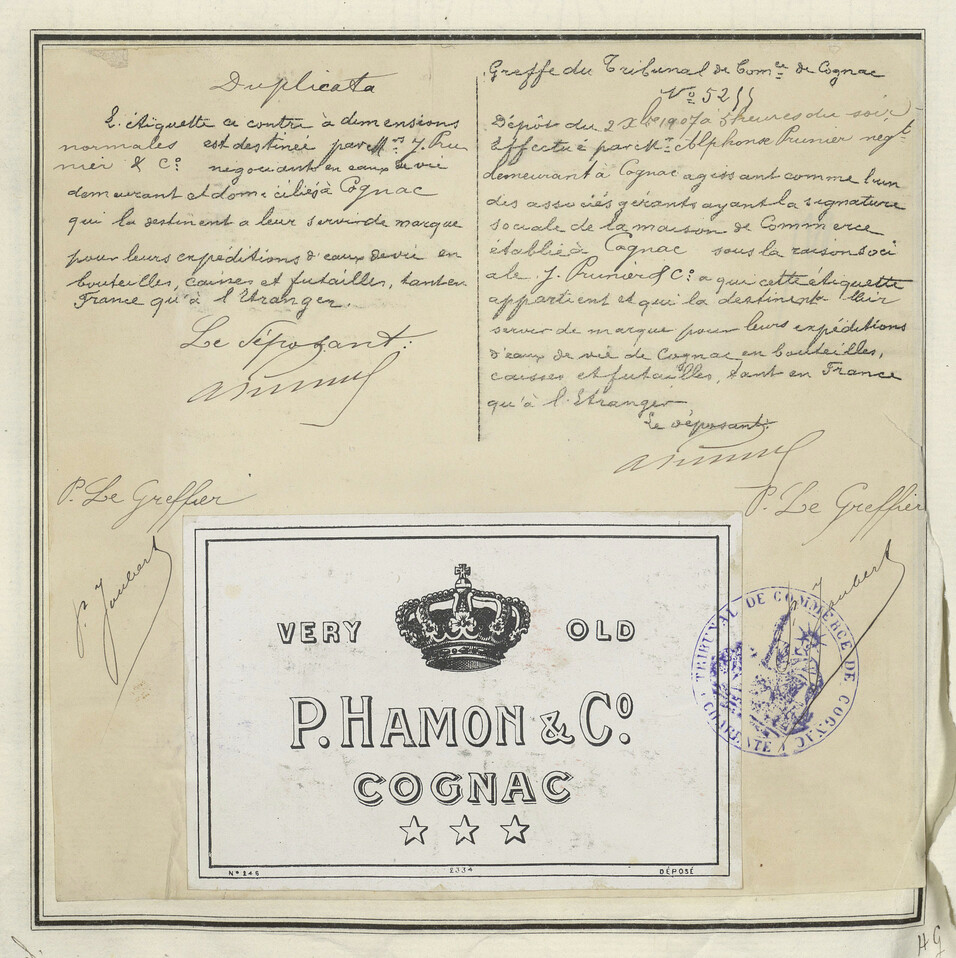 Duplicata
L'étiquette ci contre à demensions
normales est destinée par Mrs J. Pru
nier & Co negociant en eaux de vie
demeurant et domiciliés à Cognac
qui la destinent a leur servir de marque
pour leurs expéditions d'eaux de vie en
bouteilles, caisses et futailles, tant en
France qu'à l'Etranger.
Le Déposant:
P. Le Greffier
P. Joubert
Greffe du Tribunal de Comce de Cognac
No 52
Dépôt du 2 Xbre 1907 à 5 heures du soir
Effectué par Mr Alphonse Prunier negt
demeurant à Cognac agissant comme l'un
des associés gérants ayant la signature
sociale de la maison de Commerce
établie à Cognac sous la raison soci
ale J. Prunier & Co a qui cette étiquette
appartient et qui la destinent à leur
server de marque pour leurs expéditions
d'eaux de vie de Cognac en bouteilles,
caisses et futailles, tant en France
qu'à l'Etranger
Le déposant:
P. Le Greffier
Joubert
VERY OLD
P. HAMON & Co.
COGNAC
No 246 2334 DÉPOSÉ
TRIBUNAL DE COMMERCE DE COGNAC
CHARENTE
HG